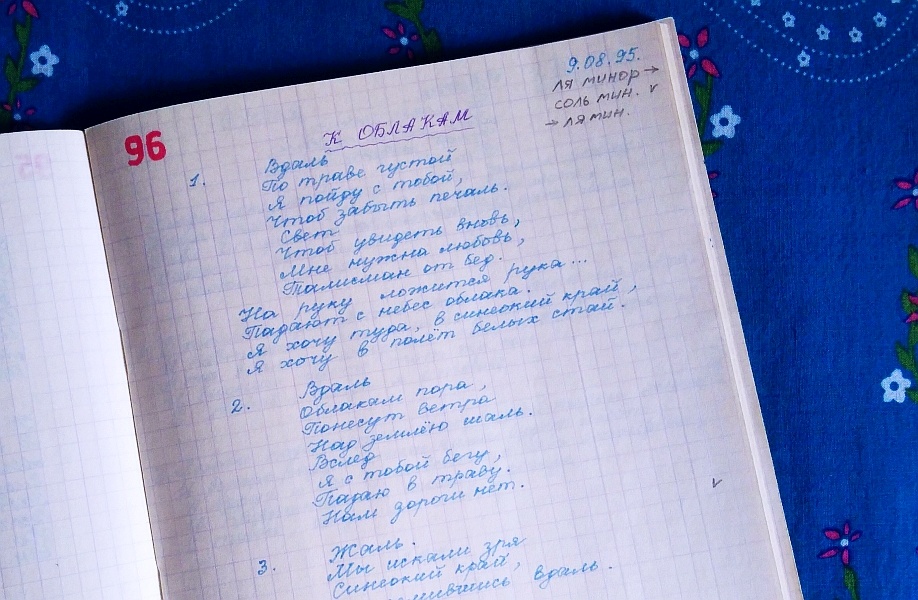 9.08.95.
ЛЯ МИНОР →
СОЛЬ МИН. v
→ ЛЯ МИН.
96
К ОБЛАКАМ
1. Вдаль
По траве густой
Я пойду с тобой,
Чтоб забыть печаль.
Свет
Чтоб увидеть вновь,
Мне нужна любовь,
Талисман от бед.
На руку ложится рука...
Падают с небес облака.
Я хочу туда, в синеокий край,
Я хочу в полёт белых стай.
2. Вдаль
Облакам пора,
Понесут ветра
Над землёю шаль.
Вслед
Я с тобой бегу,
Падаю в траву.
Нам дороги нет.
v
3. Жаль.
Мы искали зря
Синеокий край,
вдаль.